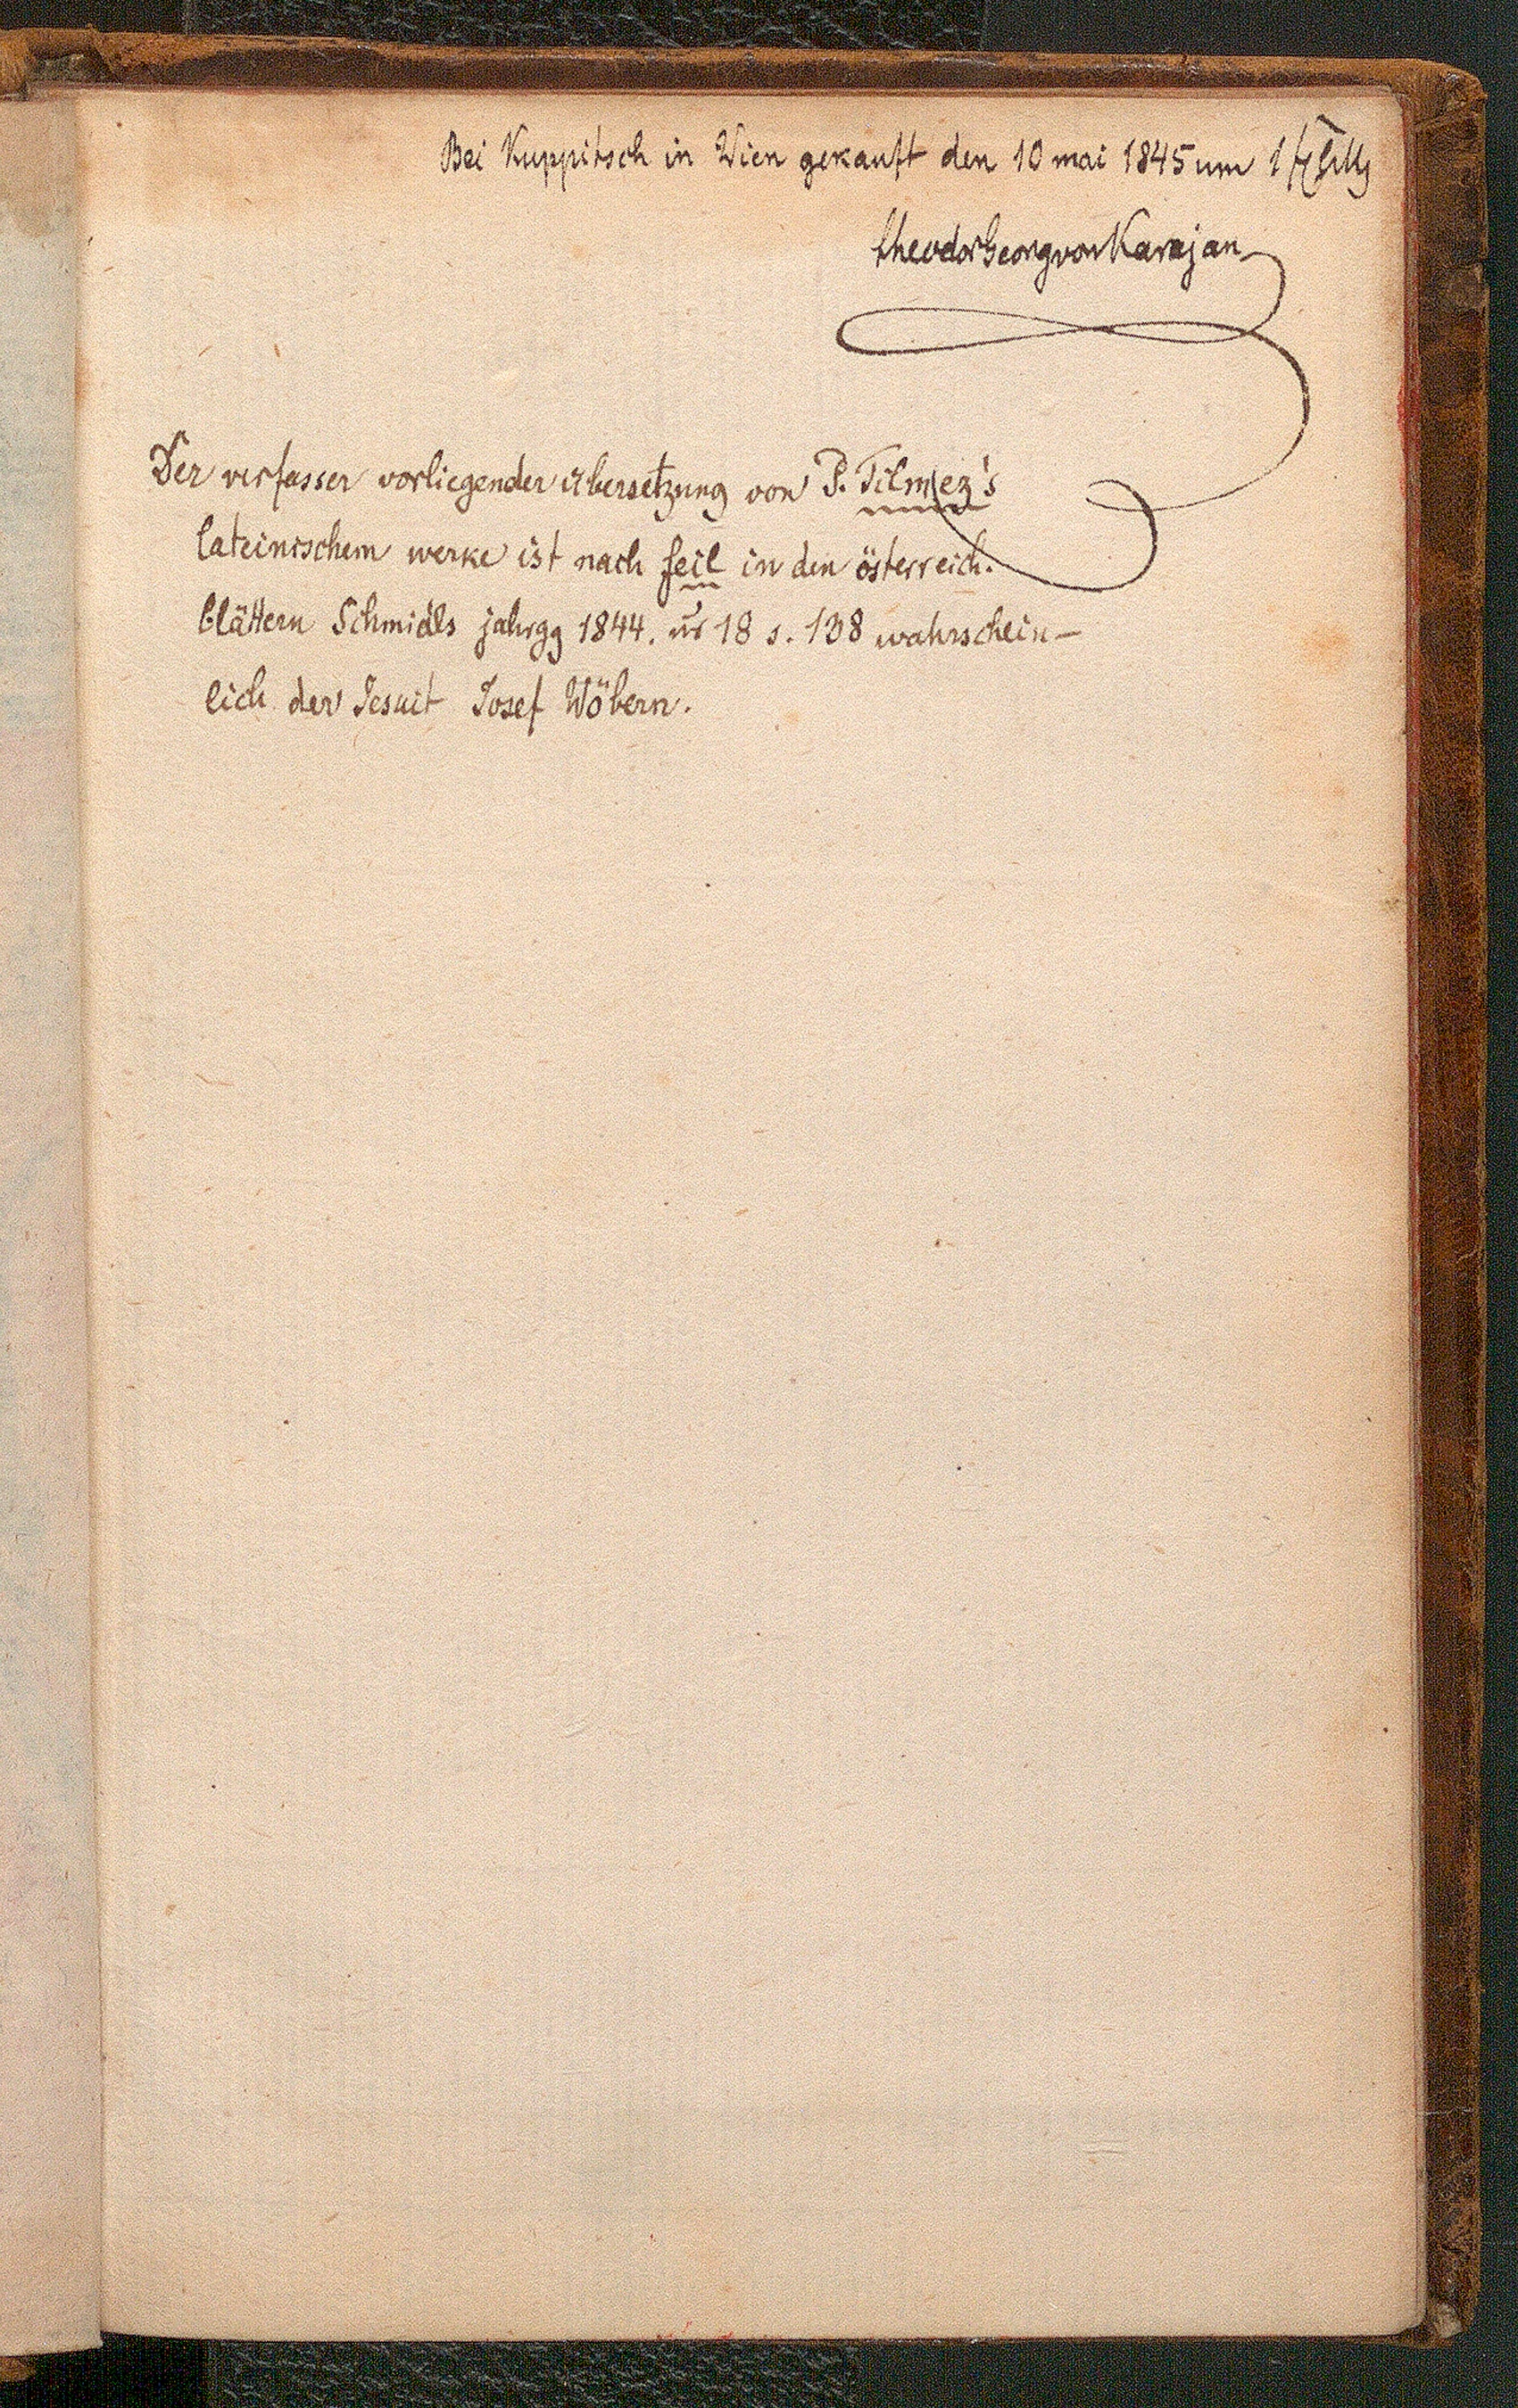 Bei Kuppitsch in Wien gekauft den 10 mai 1845 um 1
theodor Georg von Karajan
Der verfasser vorliegender übersetzung von P. Tilmez's
lateinischem werke ist nach feil in den österreich.
blättern Schmidls jahrgg 1844. nr 18 s. 138 wahrschein-
lich der Jesuit Josef Wöbern.